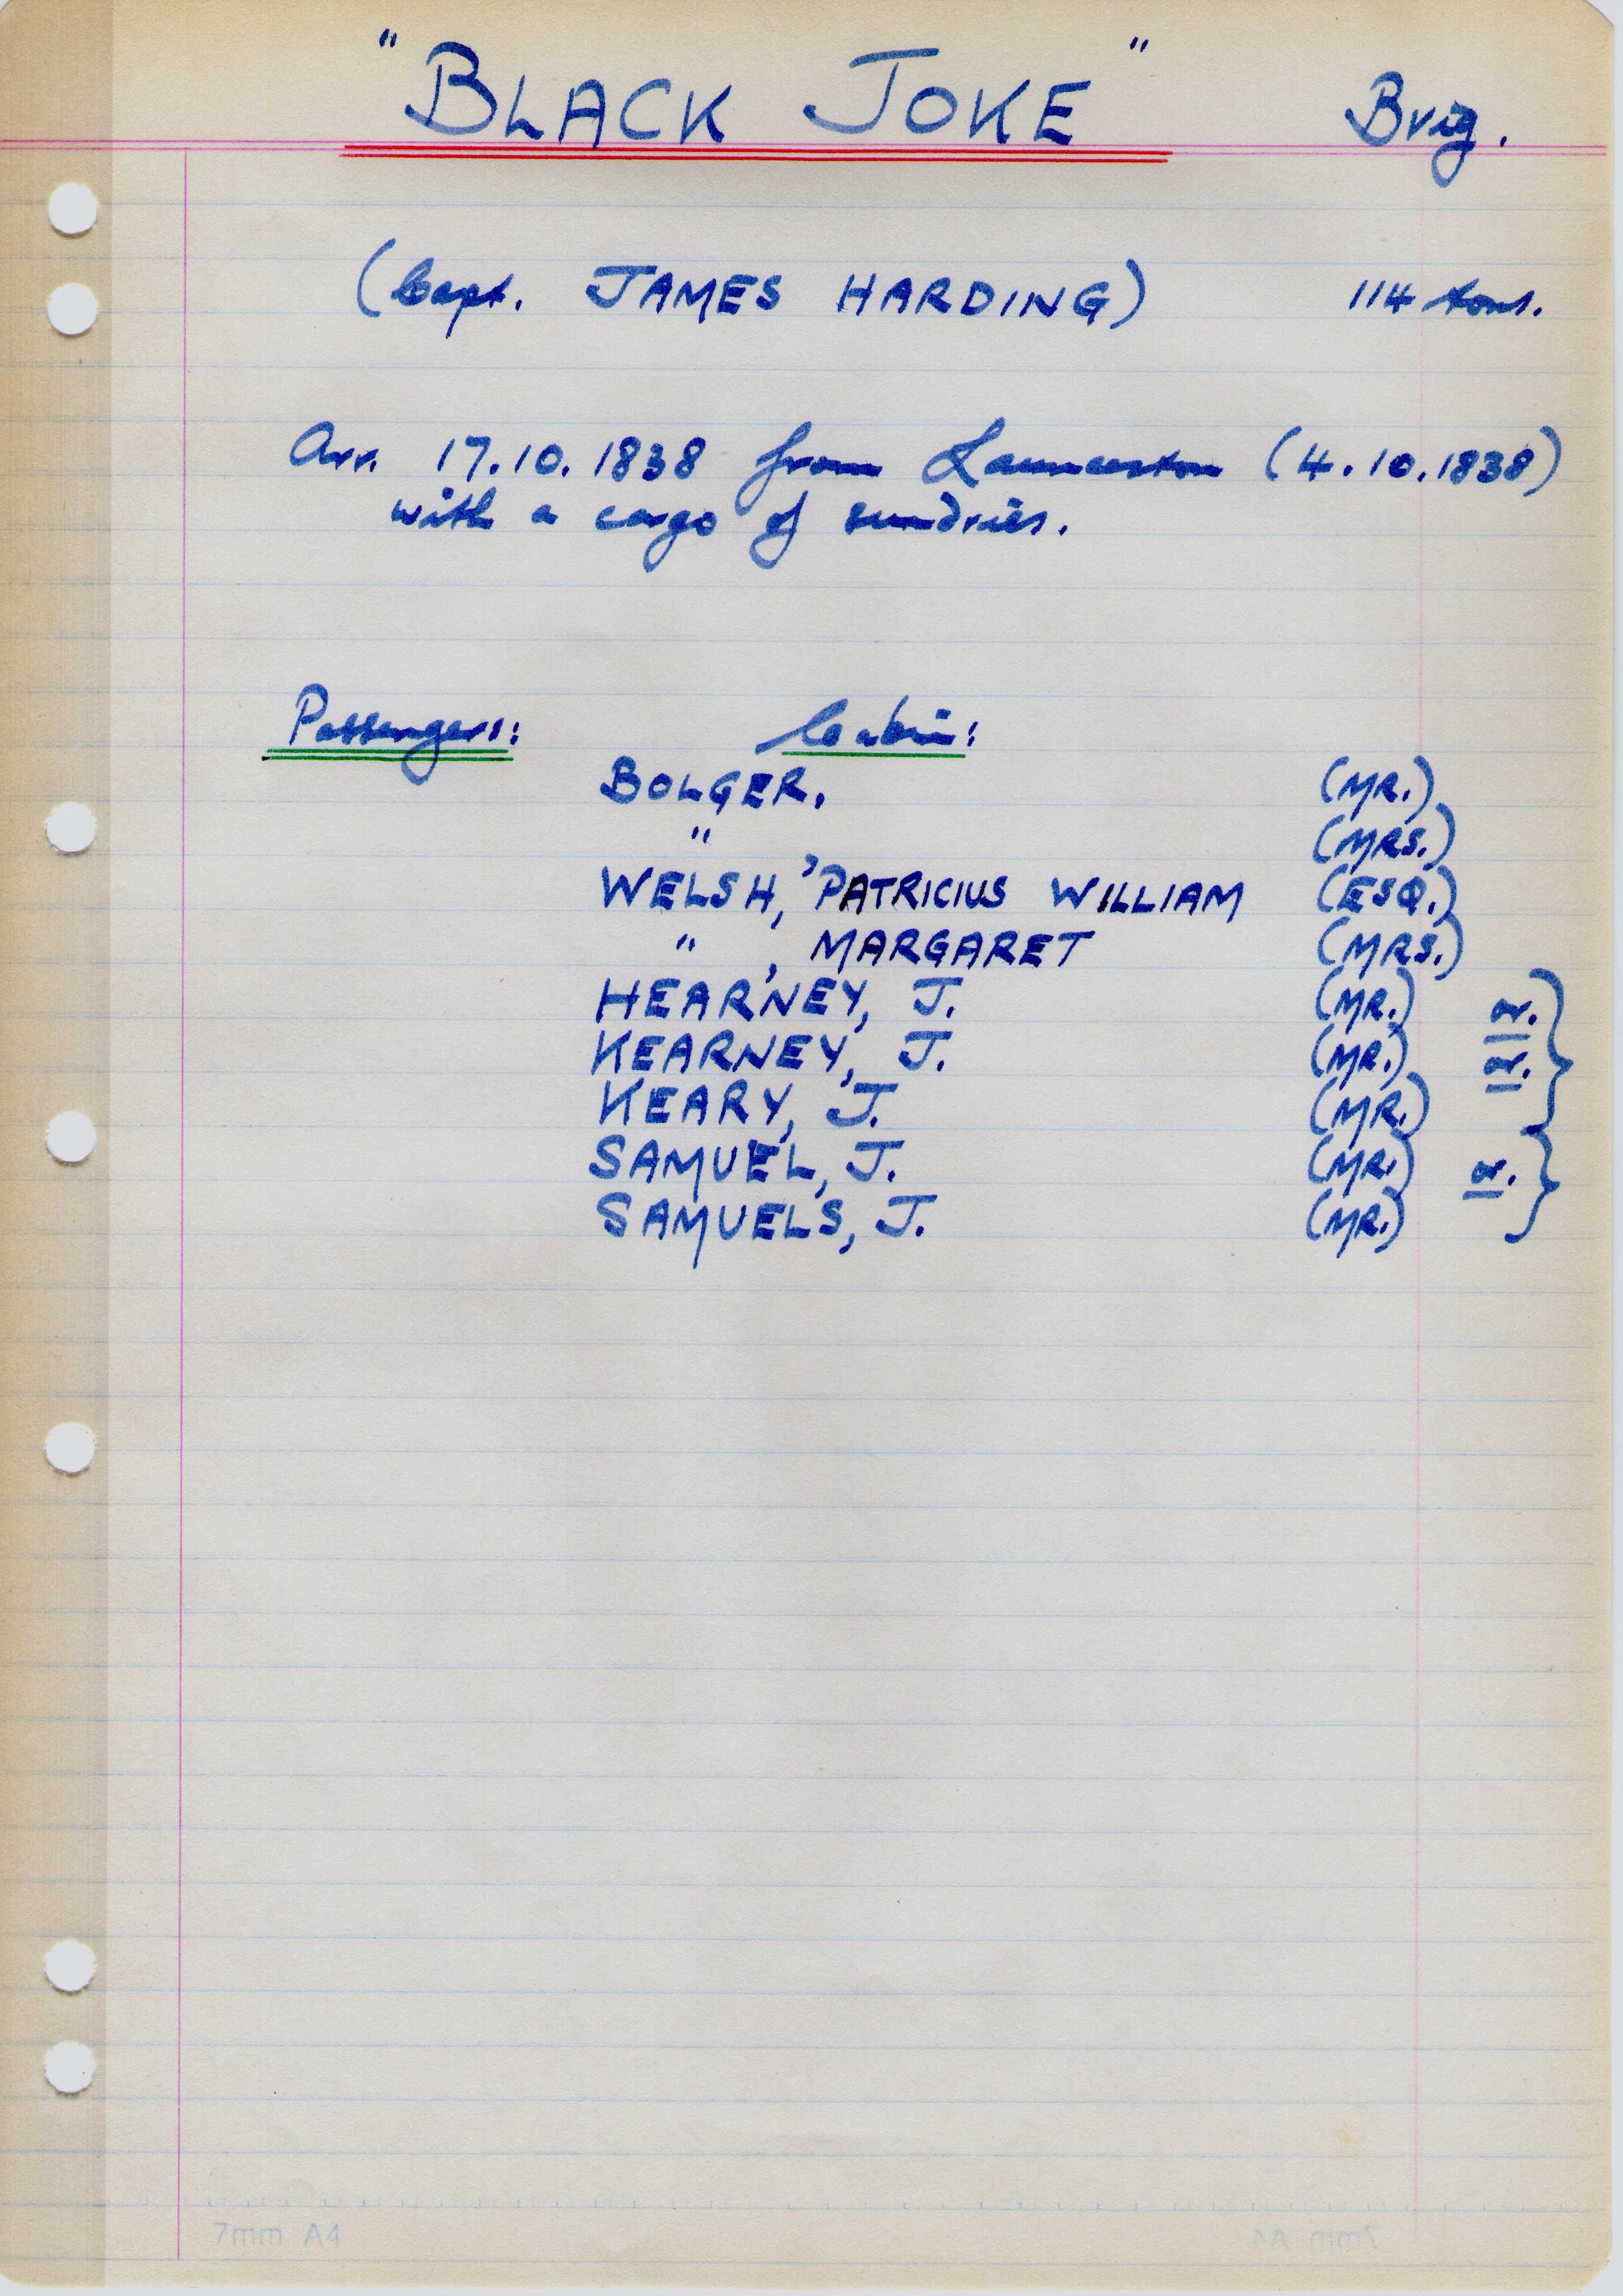 "BLACK JOKE" Brig.
(Capt. JAMES HARDING) 114 tons.
Arr. 17.10.1838 from Launceston (4.10.1838)
with a cargo of sundries.
Passengers: Cabin:
BOLGER. (MR.)
" (MRS.)
WELSH, PATRICIUS WILLIAM (ESQ.)
" , MARGARET (MRS.)
HEARNEY, J. (MR.) or. }
KEARNEY, J. (MR.) or.
KEARY, J. (MR.)
SAMUEL, J. (MR.) or. }
SAMUELS, J. (MR.)
7mm A4 7mm A4